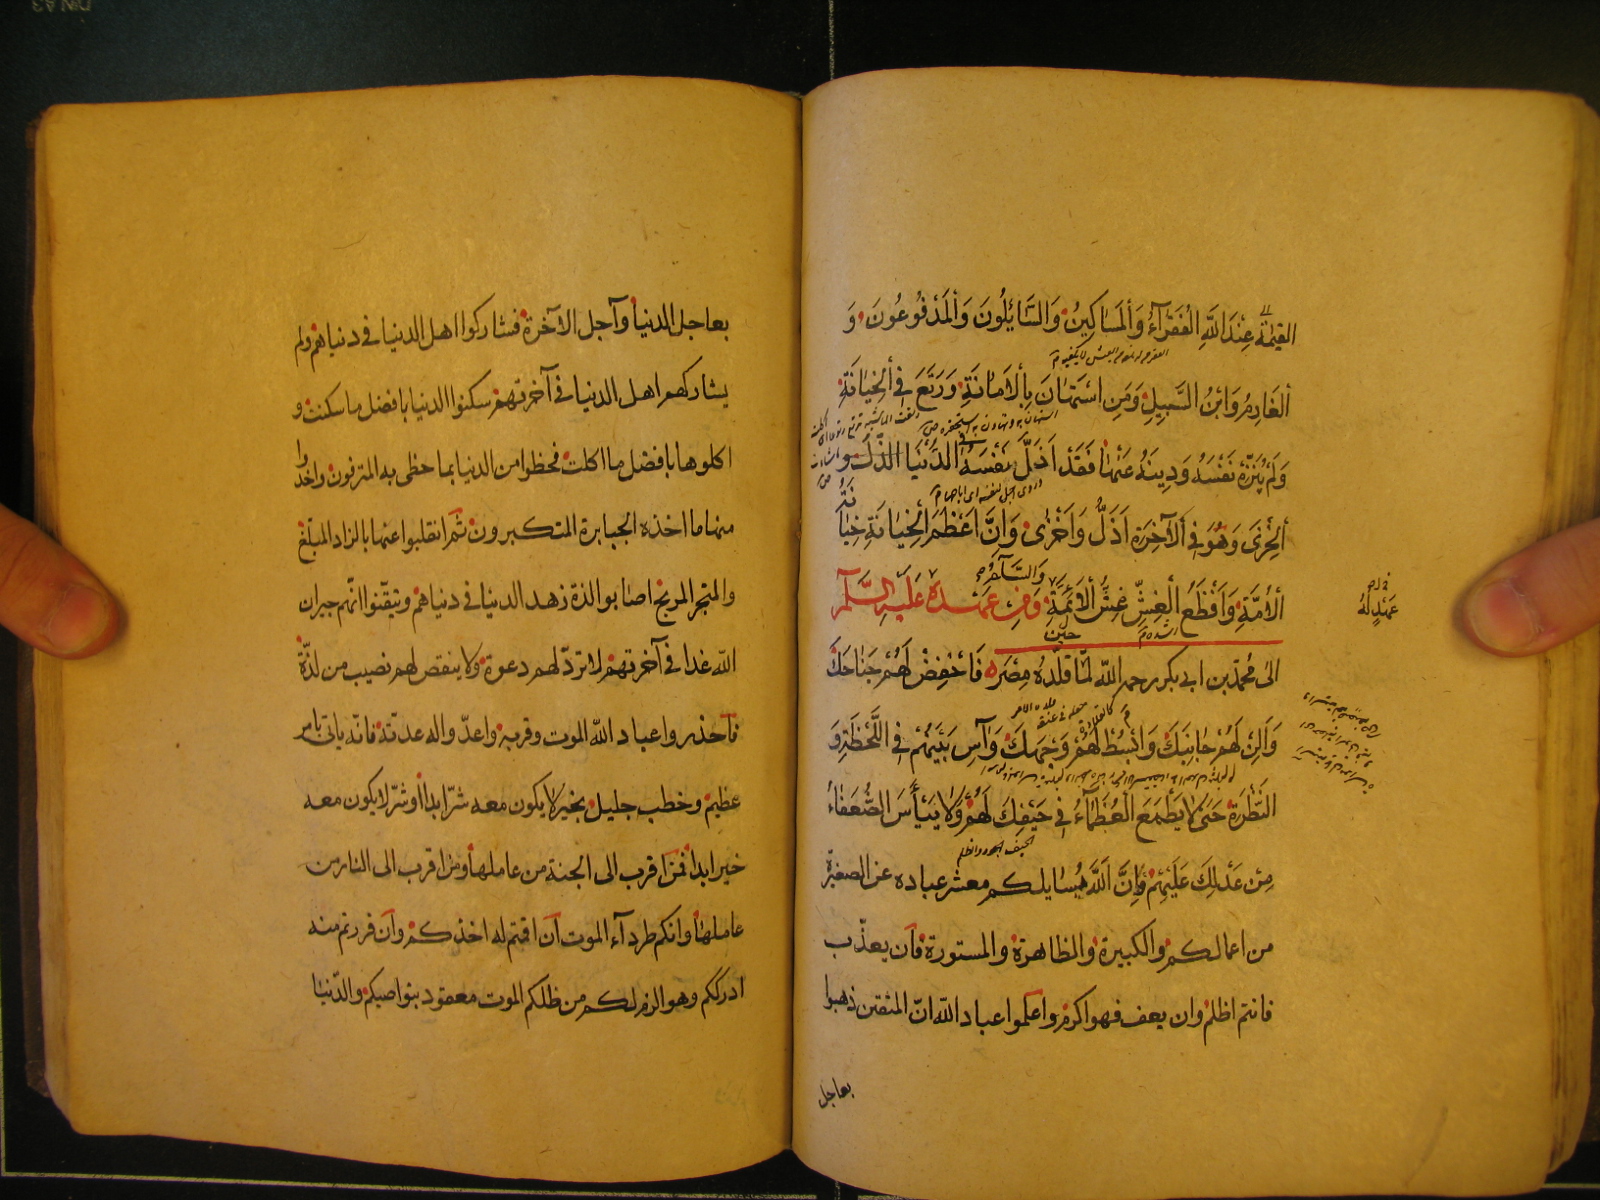 القيمة عِنْدَ اللَّهِ الْفُقَرَآءُ وَالْمَسَاكِينُ وَالسَّائِلُونَ وَالْمَدْفُوعُونَ وَ
الْغَارِمُ وَابْنُ السَّبِيلِ وَمَنِ اسْتَهَانَ بِالْأَمَانَةِ وَرَتَعَ فِي الْخِيَانَةِ
وَلَمْ يُنَزِّهْ نَفْسَهُ وَدِينَهُ عَنْهَا فَقَدْ أَذَلَّ نَفْسَهُ فِي الدُّنْيَا الذُّلَّ وَ
الْخِزْيَ وَهُوَ فِي الْآخِرَةِ أَذَلُّ وَأَخْزَى وَإِنَّ أَعْظَمَ الْخِيَانَةِ خِيَانَةُ
الْأُمَّةِ وَأَفْظَعَ الْغِشِّ غِشُّ الْأَئِمَّةِ وَالسَّلَام وَمِنْ عَهْدِهِ عَلَيْهِ السَّلَام
الى مُحَمَّد بن ابي بكر رحمه الله لَمَّا قلَّدهُ مِصْرَ فَاخْفِضْ لَهُمْ جَنَاحَكَ
حين
وَأَلِنْ لَهُمْ جَانِبَكَ وَابْسُطْ لَهُمْ وَجْهَكَ وَآسِ بَيْنَهُمْ فِي اللَّحْظَةِ وَ
النَّظْرَةِ حَتَّى لَا يَطْمَعَ الْعُظَمَاءُ فِي حَيْفِكَ لَهُمْ وَلَا يَيْأَسَ الضُّعَفَاءُ
الحيف الجور والظلم
مِنْ عَدْلِكَ عَلَيْهِمْ فَإِنَّ اللَّهَ يُسَايلكم معشر عباده عن الصغيرة
من اعمالكم والكبيرة والظاهرة والمستورة فان يعذّب
فانتم اظلم وان يعف فهو اكرم واعلموا عباد الله انّ المتقين ذهبوا
بعاجل
بعاجل الدنيا وآجل الاخرة فشاركوا اهل الدنيا في دنياهم ولم
يشاركهم اهل الدنيا في آخرتهم سكنوا الدنيا بافضل ما سكنت و
اكلوها بافضل ما اكلت فحظوا من الدنيا بما حظى به المترفون واخذوا
منها ما اخذه الجبابرة المتكبرون ثم انقلبوا عنها بالزاد المبلّغ
والمتجر المربح اصابوا لذة زهد الدنيا في دنياهم وتيقّنوا انّهم جيران
الله غدا في آخرتهم لا تردّ لهم دعوة ولا ينقص لهم نصيب من لذّة
فاحذروا عباد الله الموت وقربه واعدّوا له عدّته فانّه ياتي بامر
عظيم وخطب جليل بخير لا يكون معه شرّ ابدا او شرّ لا يكون معه
خير ابدا فمن اقرب الى الجنة من عاملها ومن اقرب الى النار من
عاملها وانكم طرداء الموت ان اقمتم له اخذكم وان فررتم منه
ادرككم وهو الزم لكم من ظلكم الموت معقود بنواصيكم والدّنيا